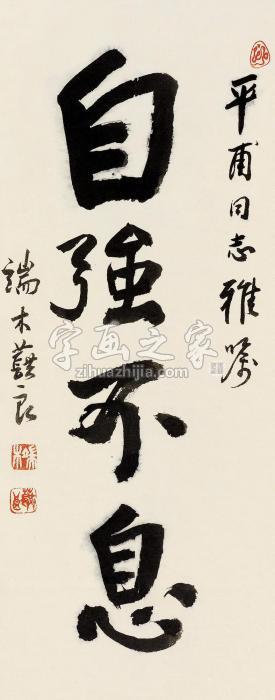 平甫同志雅嘱
自強不息
端木蕻良
字画之家
zihuazhijia.com